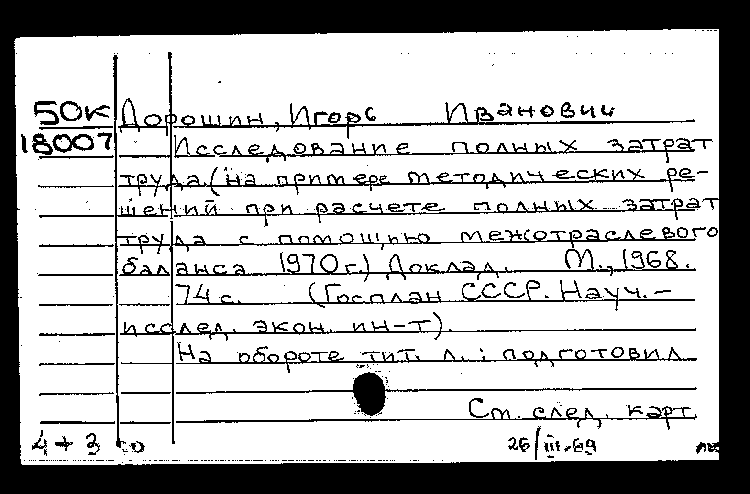 50к Дорошин, Игорь Иванович
18007 Исследование полных затрат
труда (на примере методических ре-
шений при расчете полных затрат
труда с помощью межотраслевого
баланса 1970 г.) Доклад. М., 1968.
74 с. (Госплан СССР. Науч.-
исслед. экон. ин-т).
На обороте тит. л.: подготовил
См. след. карт.
4+3 26/III-69